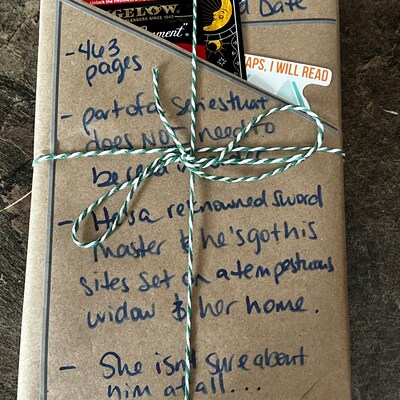 Unlock the
d Date
BIGELOW
BLENDERS SINCE 1945
APS, I WILL READ
- 463
pages
- part of a series that
does NOT need to
be read in
- He's a renowned sword
master & he's got his
sites set on a tempestuous
widow & her home.
- She isn't sure about
him at all...